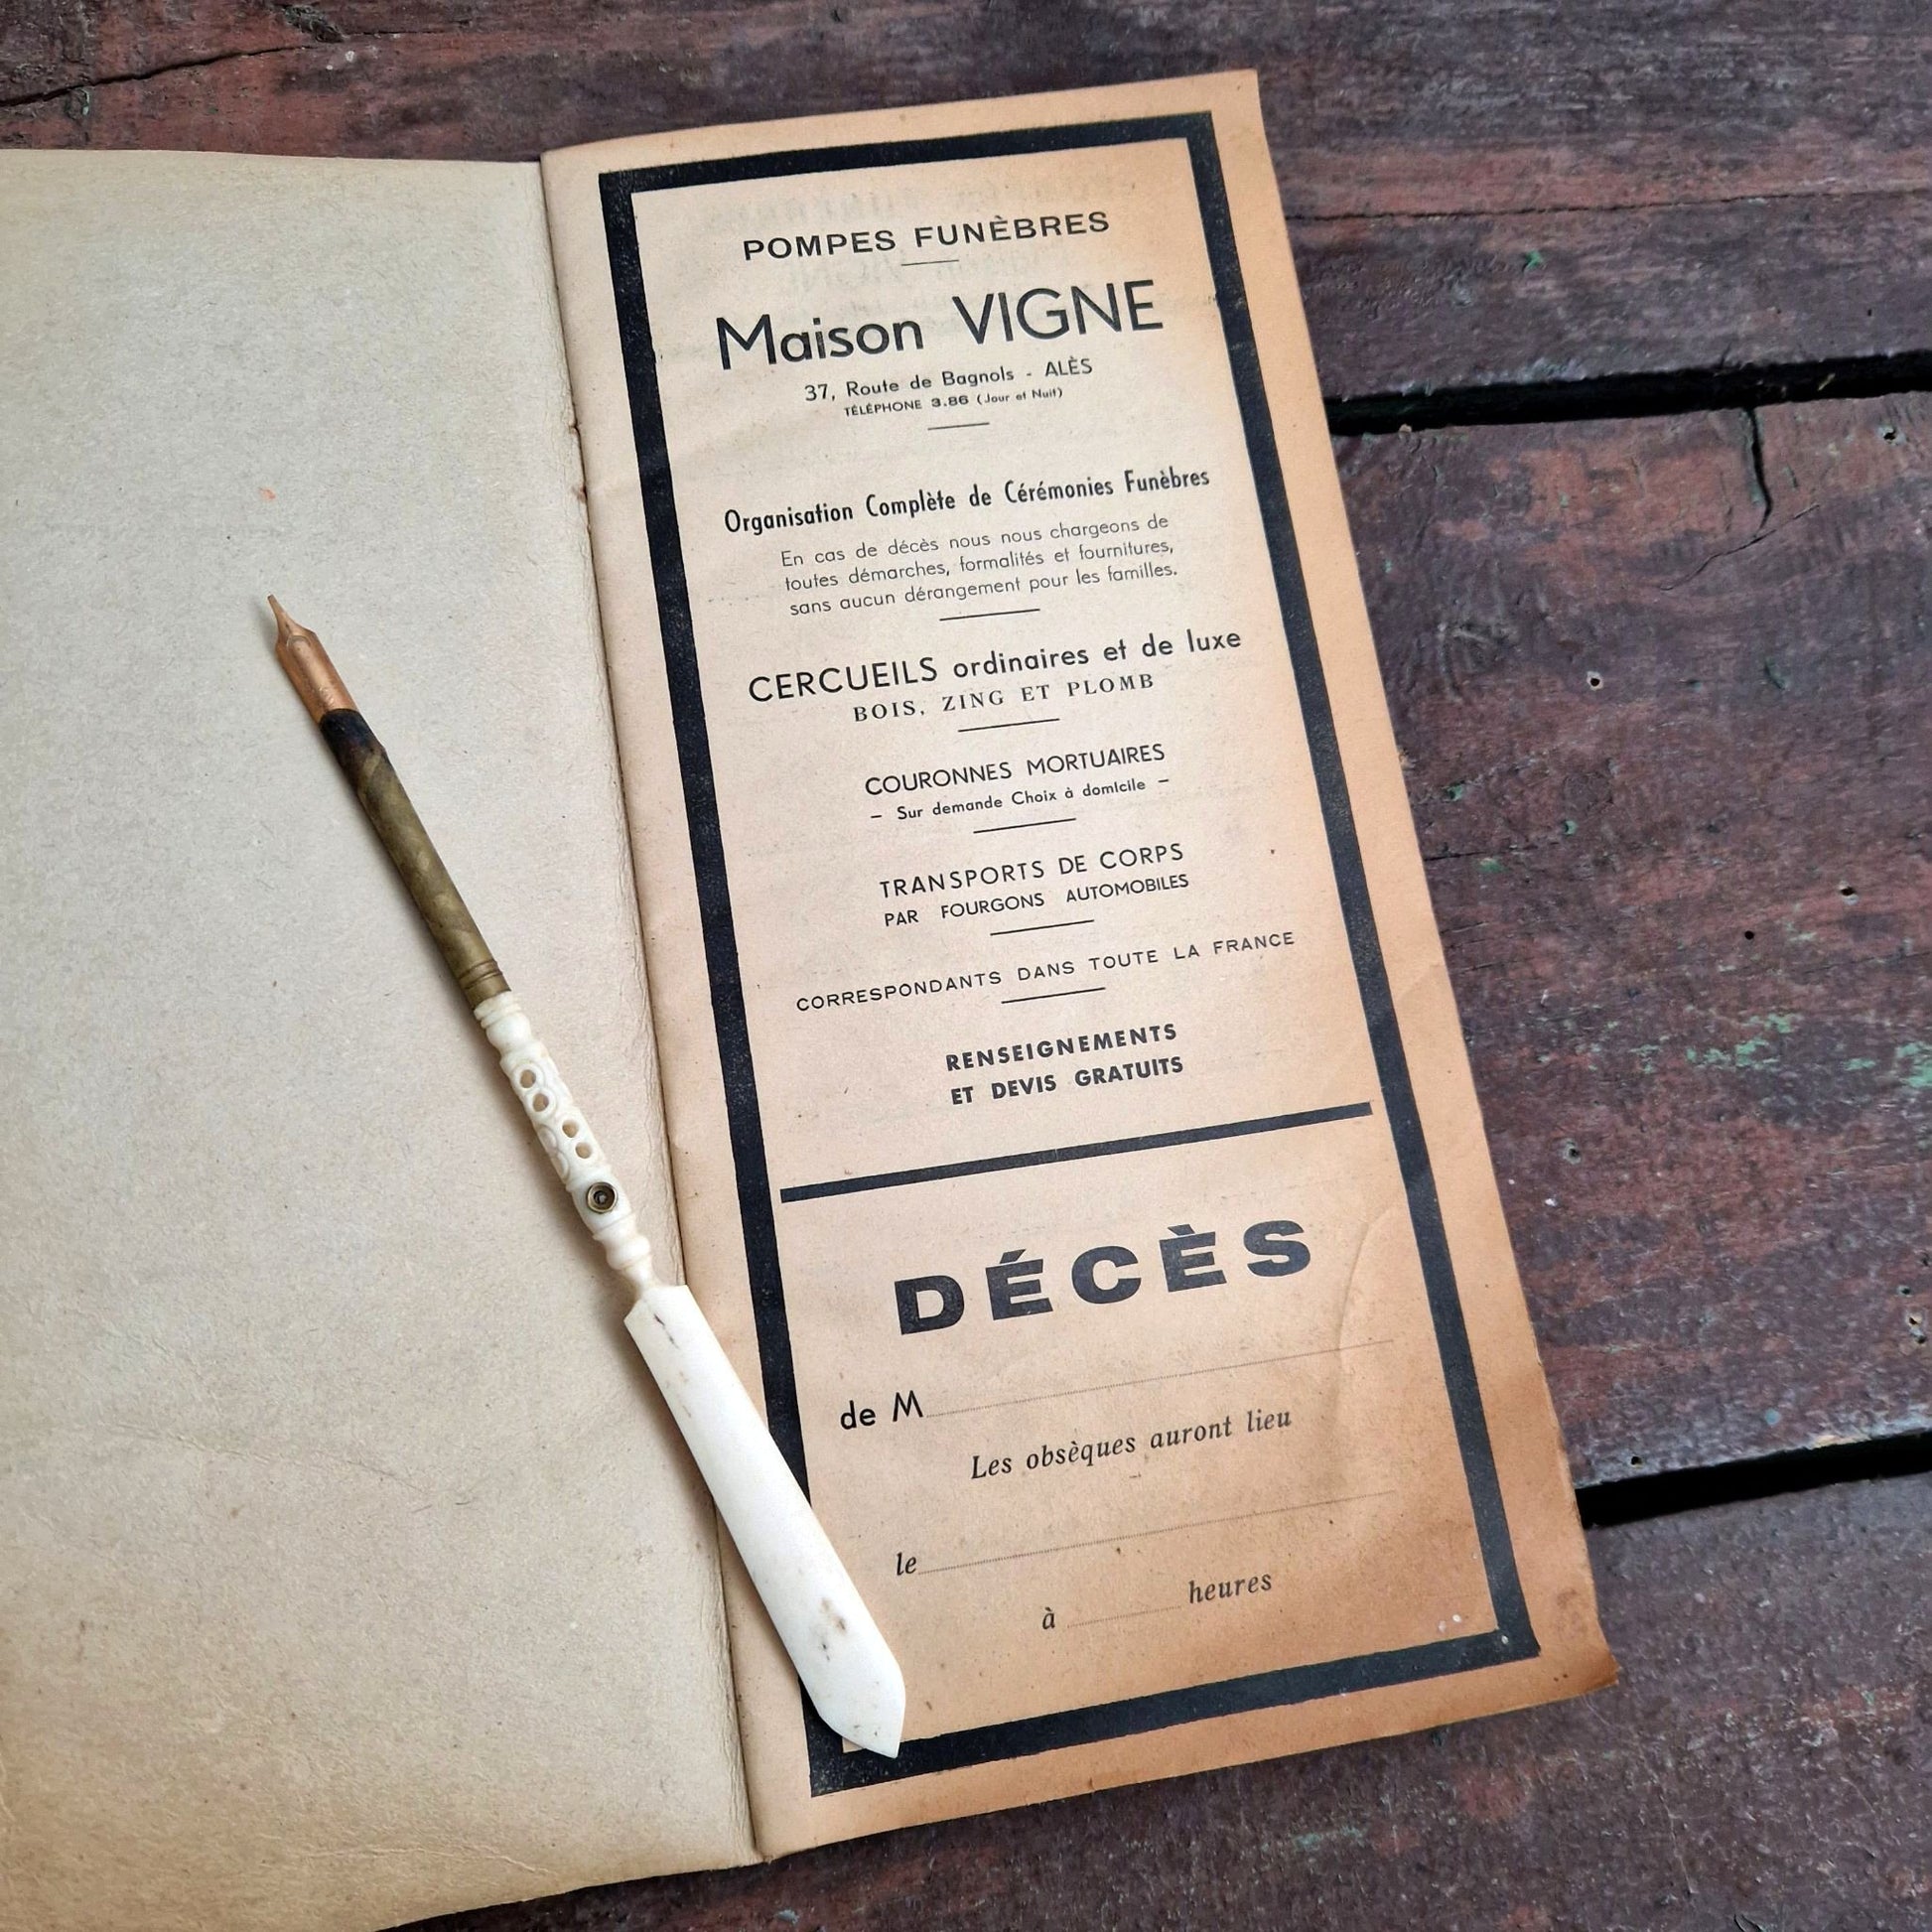 POMPES FUNÈBRES
Maison VIGNE
37, Route de Bagnols - ALÈS
TÉLÉPHONE 3.86 (Jour et Nuit)
Organisation Complète de Cérémonies Funèbres
En cas de décès nous nous chargeons de
toutes démarches, formalités et fournitures,
sans aucun dérangement pour les familles.
CERCUEILS ordinaires et de luxe
BOIS, ZING ET PLOMB
COURONNES MORTUAIRES
– Sur demande Choix à domicile –
TRANSPORTS DE CORPS
PAR FOURGONS AUTOMOBILES
CORRESPONDANTS DANS TOUTE LA FRANCE
RENSEIGNEMENTS
ET DEVIS GRATUITS
DÉCÈS
de M
Les obsèques auront lieu
le
à heures